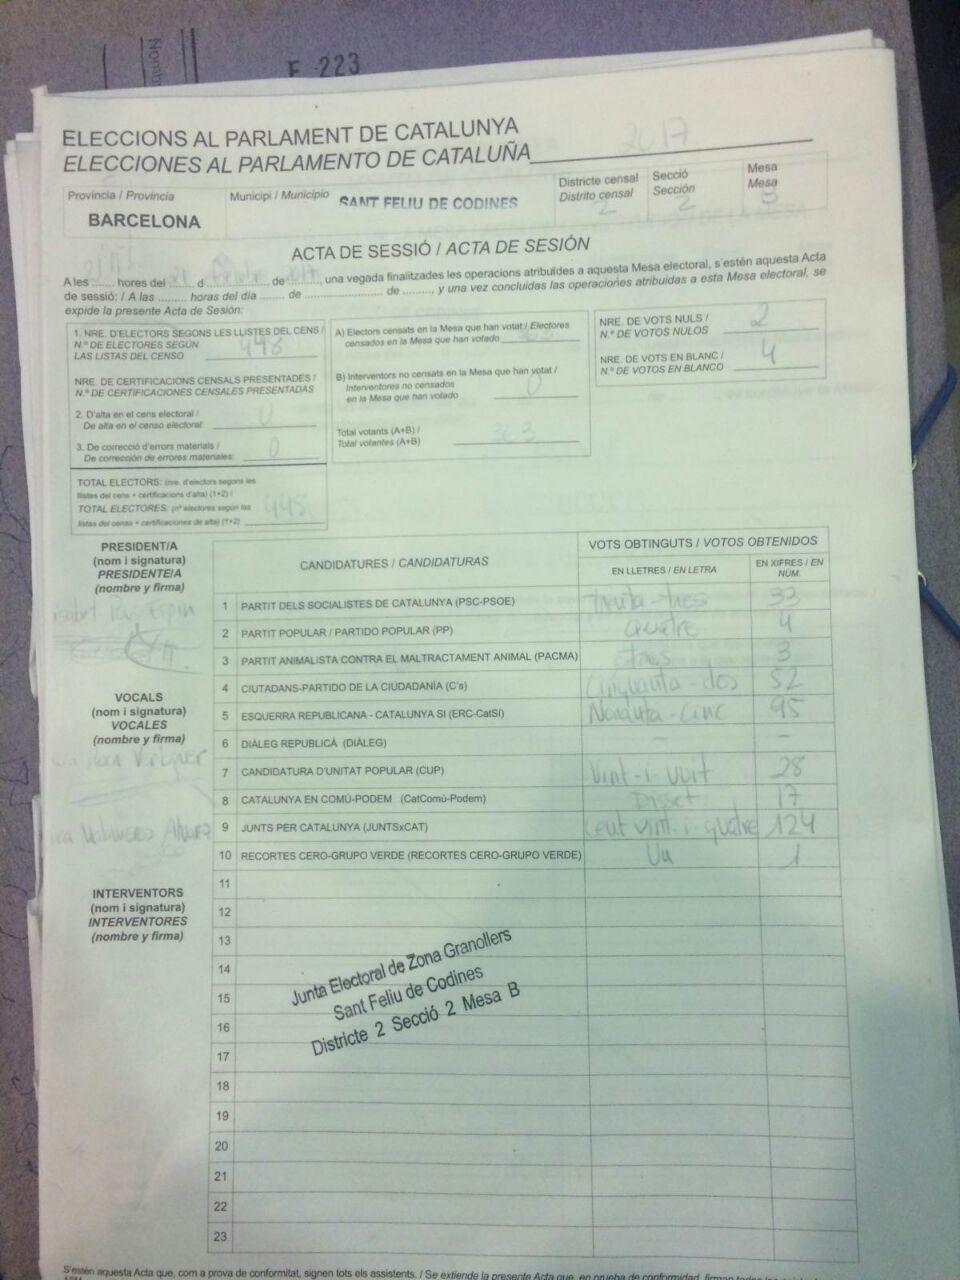 F 223
ELECCIONS AL PARLAMENT DE CATALUNYA
ELECCIONES AL PARLAMENTO DE CATALUÑA 2017
Província / Provincia
BARCELONA
Municipi / Municipio SANT FELIU DE CODINES
Districte censal
Distrito censal
2
Secció
Sección
2
Mesa
Mesa
B
ACTA DE SESSIÓ / ACTA DE SESIÓN
A les ...... hores del 21 d ...... de ......, una vegada finalitzades les operacions atribuïdes a aquesta Mesa electoral, s'estén aquesta Acta
de sessió: / A las ......... horas del día ....... de ........................ de ........, y una vez concluidas las operaciones atribuidas a esta Mesa electoral, se
expide la presente Acta de Sesión:
1. NRE. D'ELECTORS SEGONS LES LLISTES DEL CENS /
N.º DE ELECTORES SEGÚN
LAS LISTAS DEL CENSO 448
NRE. DE CERTIFICACIONS CENSALS PRESENTADES /
N.º DE CERTIFICACIONES CENSALES PRESENTADAS
2. D'alta en el cens electoral /
De alta en el censo electoral: 0
3. De correcció d'errors materials /
De corrección de errores materiales: 0
TOTAL ELECTORS: (nre. d'electors segons les
llistes del cens + certificacions d'alta) (1+2) /
TOTAL ELECTORES: (nº electores según las
listas del censo + certificaciones de alta) (1+2) 448
A) Electors censats en la Mesa que han votat / Electores
censados en la Mesa que han votado 363
B) Interventors no censats en la Mesa que han votat /
Interventores no censados
en la Mesa que han votado 0
Total votants (A+B) /
Total votantes (A+B) 363
NRE. DE VOTS NULS /
N.º DE VOTOS NULOS 2
NRE. DE VOTS EN BLANC /
N.º DE VOTOS EN BLANCO 4
PRESIDENT/A
(nom i signatura)
PRESIDENTE/A
(nombre y firma)
VOCALS
(nom i signatura)
VOCALES
(nombre y firma)
INTERVENTORS
(nom i signatura)
INTERVENTORES
(nombre y firma)
CANDIDATURES / CANDIDATURAS
VOTS OBTINGUTS / VOTOS OBTENIDOS
EN LLETRES / EN LETRA
EN XIFRES / EN NÚM.
1 PARTIT DELS SOCIALISTES DE CATALUNYA (PSC-PSOE) trenta-tres 33
2 PARTIT POPULAR / PARTIDO POPULAR (PP) quatre 4
3 PARTIT ANIMALISTA CONTRA EL MALTRACTAMENT ANIMAL (PACMA) tres 3
4 CIUTADANS-PARTIDO DE LA CIUDADANÍA (C's) Cinquanta-dos 52
5 ESQUERRA REPUBLICANA - CATALUNYA SI (ERC-CatSI) Noranta-cinc 95
6 DIÀLEG REPUBLICÀ (DIÀLEG) - -
7 CANDIDATURA D'UNITAT POPULAR (CUP) Vint-i-vuit 28
8 CATALUNYA EN COMÚ-PODEM (CatComú-Podem) Disset 17
9 JUNTS PER CATALUNYA (JUNTSxCAT) Cent vint-i-quatre 124
10 RECORTES CERO-GRUPO VERDE (RECORTES CERO-GRUPO VERDE) Un 1
11
12
13
14
15
16
17
18
19
20
21
22
23
Junta Electoral de Zona Granollers
Sant Feliu de Codines
Districte 2 Secció 2 Mesa B
S'estén aquesta Acta que, com a prova de conformitat, signen tots els assistents. / Se extiende la presente Acta que, en prueba de conformidad, firman todos